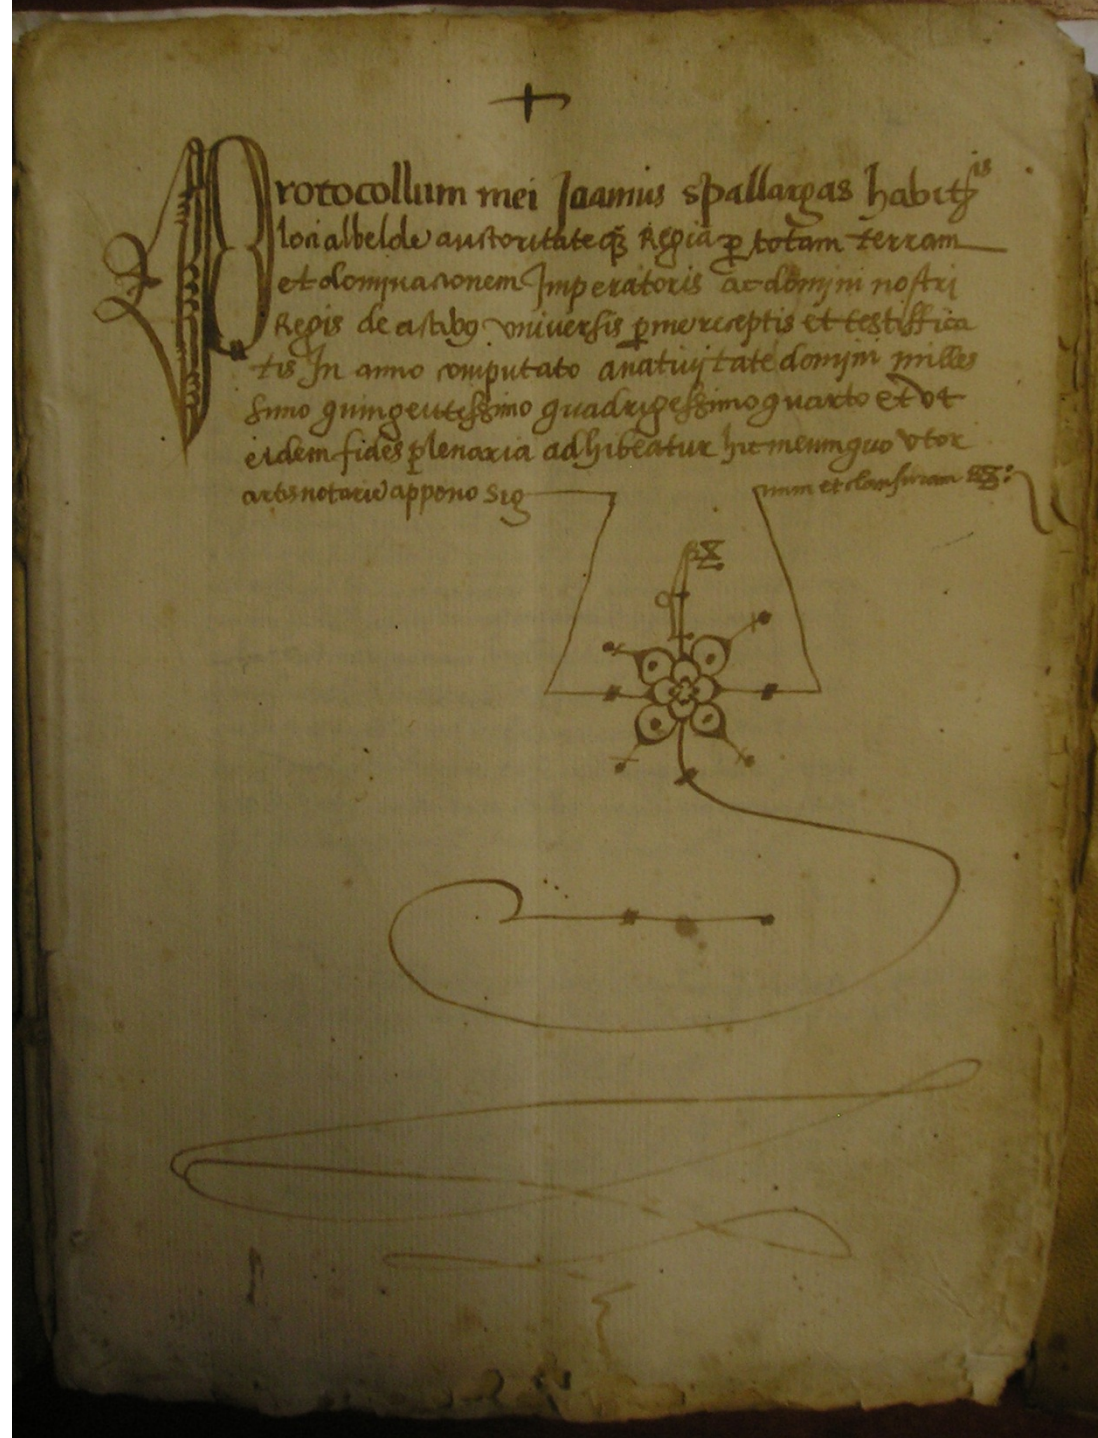 Protocollum mei Jaamius spallargas habitֿis
loci albelde auctoritateq̃ Regia p̱ totam terram
et dominacionem Imperatoris ac domini nostri
Regis de actibꝰ universis p̱ me receptis et testiffica
tis In anno computato anativitate domjni milles
simo quingentessimo quadrigessimo quarto Et Vt
eidem fides plenaria adhibeatur hic meum quo Vtor
artis notarie appono Sig num et clausuram